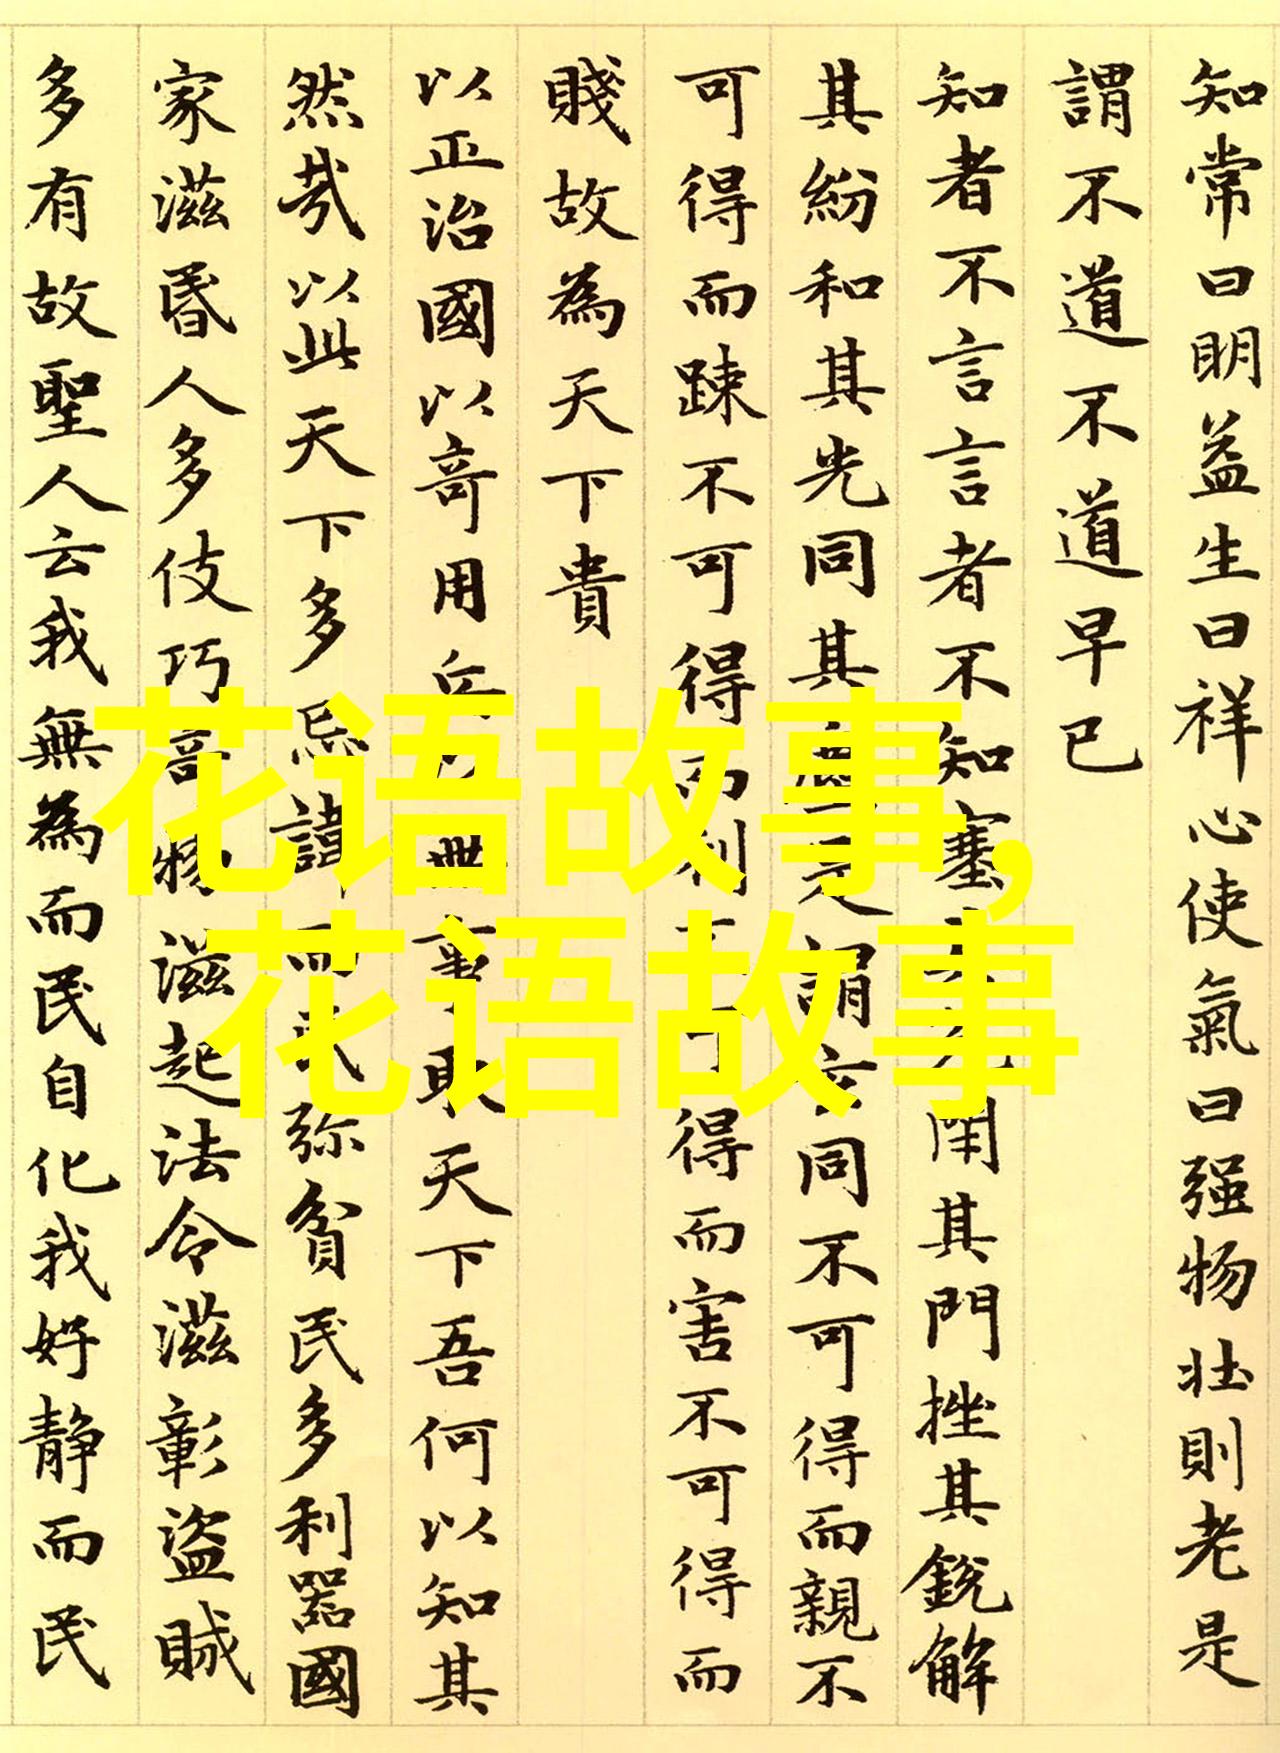 知常曰明益生曰祥心使氣曰强物壯則老是
謂不道不道早已
知者不言言者不知塞閉其門挫其銳解
其紛和其光同其是謂玄同不可得而親不
可得而踈不可得而利得而害不可得而
賤故為天下貴
以正治國以奇用兵無事取天下吾何以知其
然哉以此天下多忌諱而民弥貧民多利器國
家滋昬人多伎巧奇物滋起法令滋彰盜賊
多有故聖人云我無為而民自化我好静而民
花语故事,
花语故事